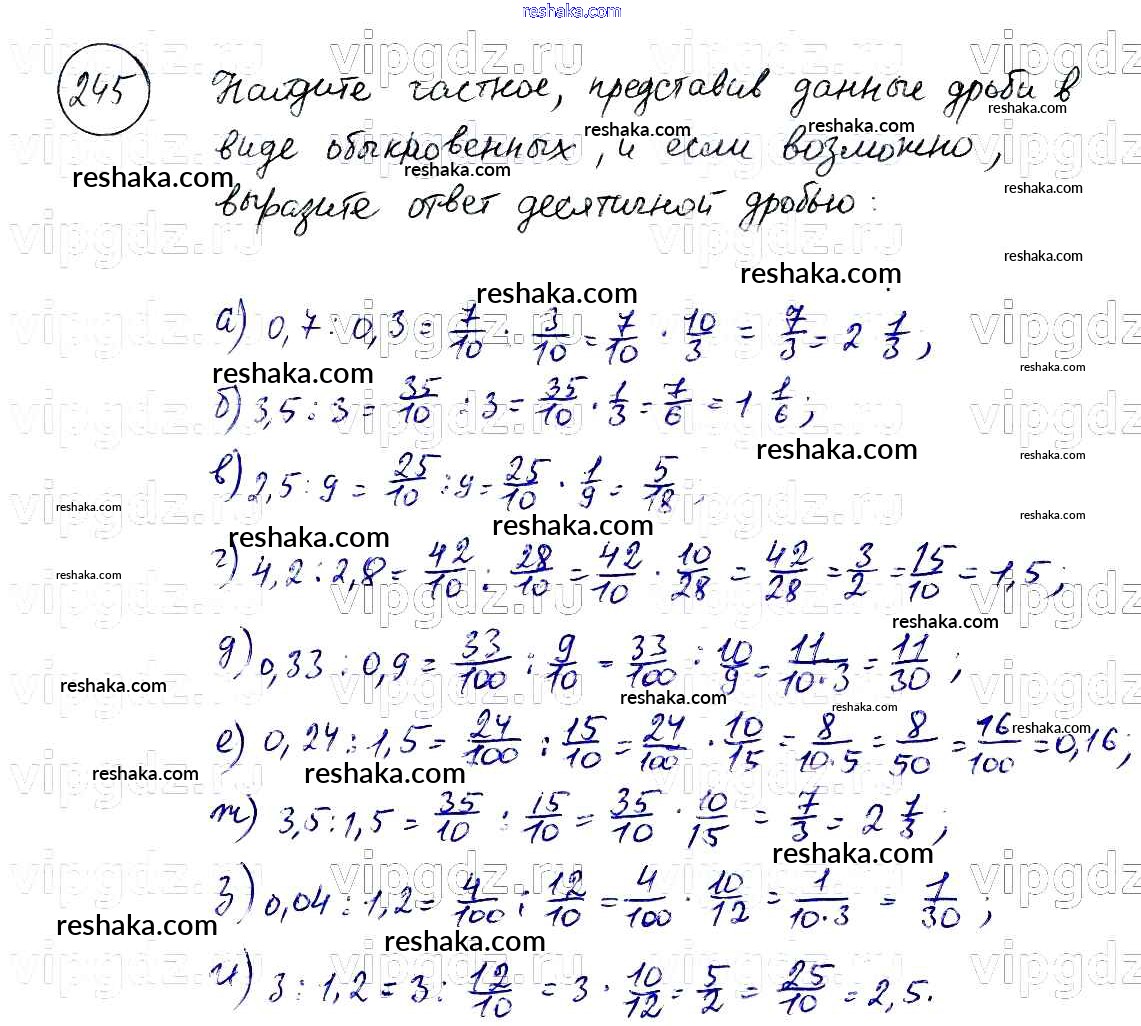 reshaka.com
245
Найдите частное, представив данные дроби в
виде обыкновенных, и если возможно,
выразите ответ десятичной дробью:
а) 0,7 : 0,3 = 7/10 : 3/10 = 7/10 · 10/3 = 7/3 = 2 1/3;
б) 3,5 : 3 = 35/10 : 3 = 35/10 · 1/3 = 7/6 = 1 1/6;
в) 2,5 : 9 = 25/10 : 9 = 25/10 · 1/9 = 5/18;
г) 4,2 : 2,8 = 42/10 : 28/10 = 42/10 · 10/28 = 42/28 = 3/2 = 15/10 = 1,5;
д) 0,33 : 0,9 = 33/100 : 9/10 = 33/100 : 10/9 = 11/10·3 = 11/30;
е) 0,24 : 1,5 = 24/100 : 15/10 = 24/100 · 10/15 = 8/10·5 = 8/50 = 16/100 = 0,16;
ж) 3,5 : 1,5 = 35/10 : 15/10 = 35/10 · 10/15 = 7/3 = 2 1/3;
з) 0,04 : 1,2 = 4/100 : 12/10 = 4/100 · 10/12 = 1/10·3 = 1/30;
и) 3 : 1,2 = 3 : 12/10 = 3 · 10/12 = 5/2 = 25/10 = 2,5.
vipgdz.ru